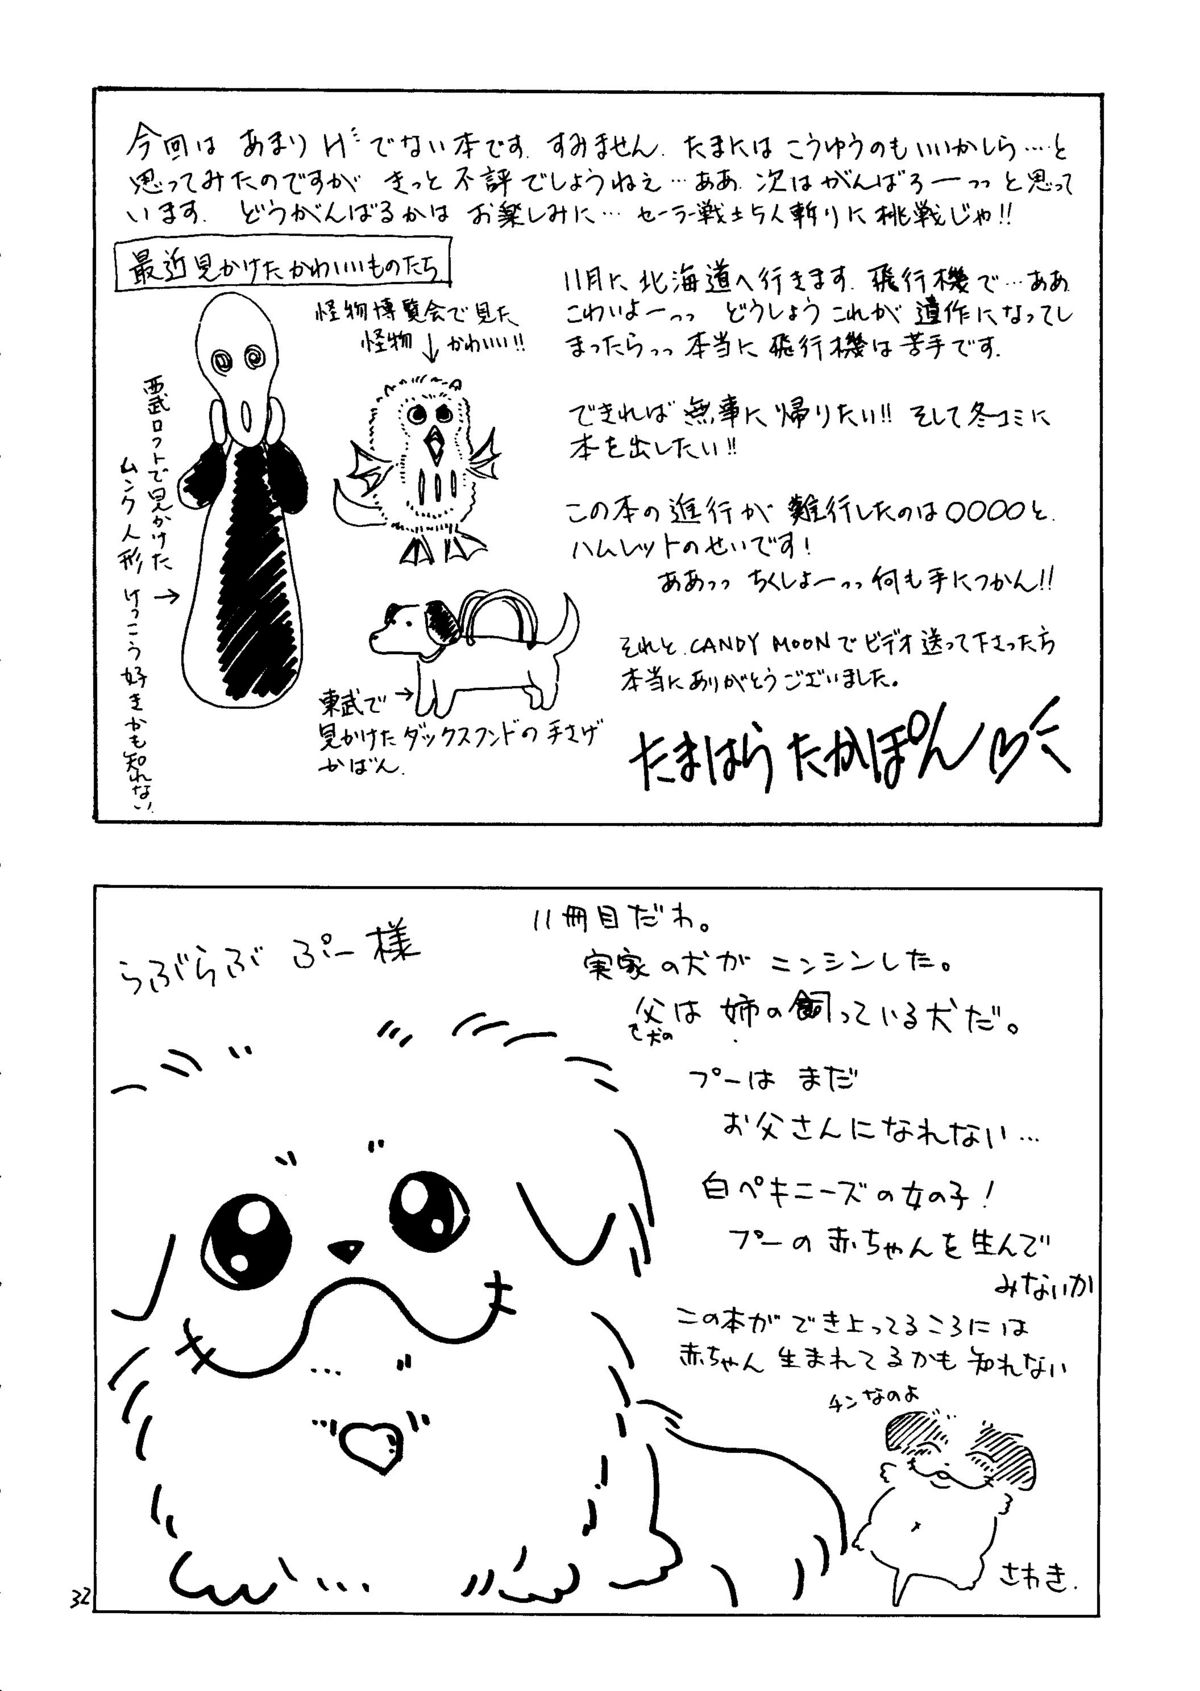 今回は あまり Hでない本です。すみません。たまには こうゆうのもいいかしら…と
思ってみたのですが きっと 不評でしょうねぇ…ああ 次はがんばろーっっと思って
います。 どうがんばるかは お楽しみに… セーラー戦士5人斬りに挑戦じゃ!!
最近見かけたかわいいものたち
怪物博覧会で見た
怪物 ↓ かわいい!!
西武ロフトで見かけた
ムンク人形 けっこう好きかも知れない。
東武で→
見かけたダックスフンドの手さげ
かばん。
11月に北海道へ行きます。飛行機で…ああ
こわいよーっっ どうしょう これが 遺作になってし
まったらっっ 本当に飛行機は苦手です。
できれば 無事に帰りたい!! そして冬コミに
本を出したい!!
この本の進行が 難行したのは○○○○と、
ハムレットのせいです!
ああっっ ちくしょーっっ何も手につかん!!
それと、CANDY MOONでビデオ送って下さった方
本当にありがとうございました。
たまはら たかぽん
らぶらぶ ぷー様
11冊目だわ。
実家の犬が ニンシンした。
父は 姉の飼っている犬だ。
犬の
プーは まだ
お父さんになれない…
白ペキニーズの女の子!
プーの赤ちゃんを生んで
みないか
この本が でき上ってるころには
赤ちゃん 生まれてるかも知れない
チンなのよ
さわき.
32